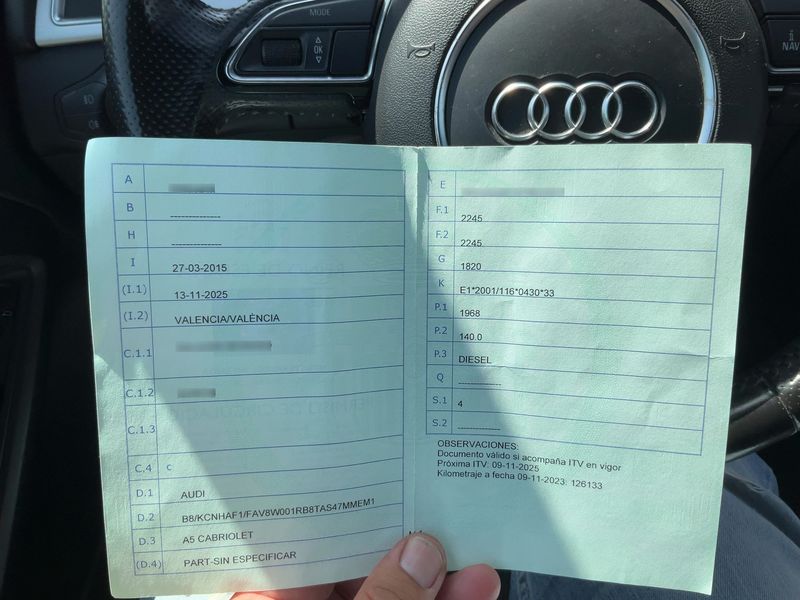 MODE
OK
i
NAV
A
B --------------
H --------------
I 27-03-2015
(I.1) 13-11-2025
(I.2) VALENCIA/VALÈNCIA
C.1.1
C.1.2
C.1.3
C.4 c
D.1 AUDI
D.2 B8/KCNHAF1/FAV8W001RB8TAS47MMEM1
D.3 A5 CABRIOLET
(D.4) PART-SIN ESPECIFICAR
E
F.1 2245
F.2 2245
G 1820
K E1*2001/116*0430*33
P.1 1968
P.2 140.0
P.3 DIESEL
Q ------------
S.1 4
S.2 ------------
OBSERVACIONES:
Documento válido si acompaña ITV en vigor
Próxima ITV: 09-11-2025
Kilometraje a fecha 09-11-2023: 126133